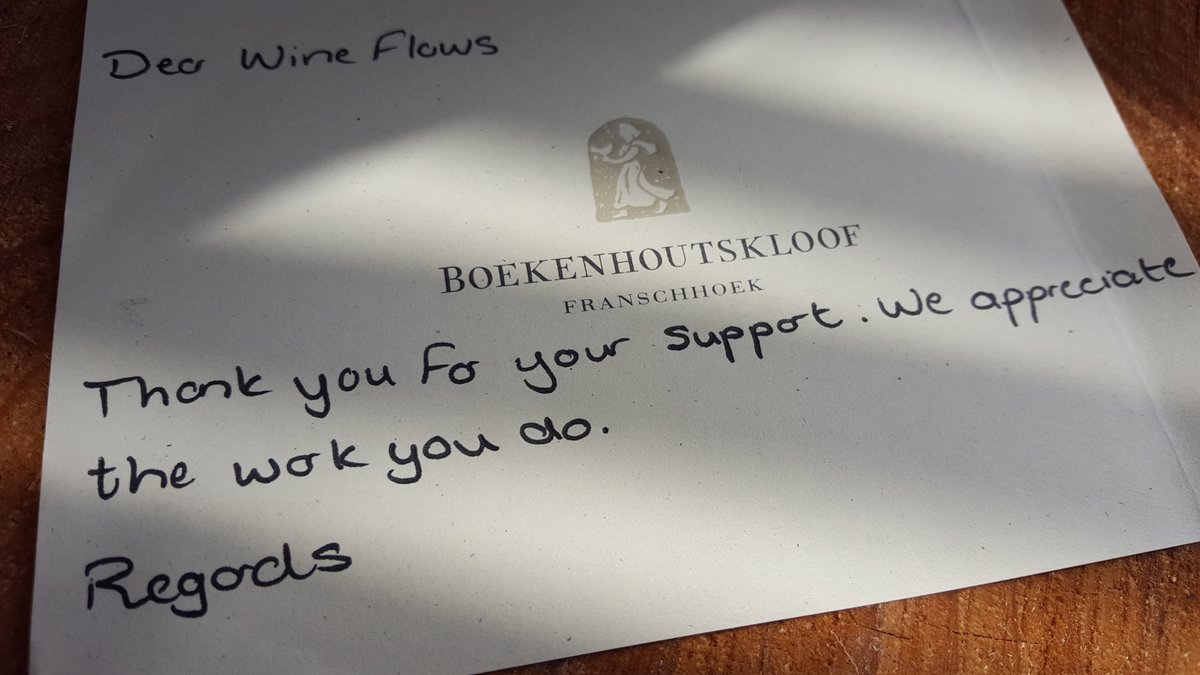 Dear Wine Flows
BOEKENHOUTSKLOOF
FRANSCHHOEK
Thank you for your support. We appreciate
the work you do.
Regards